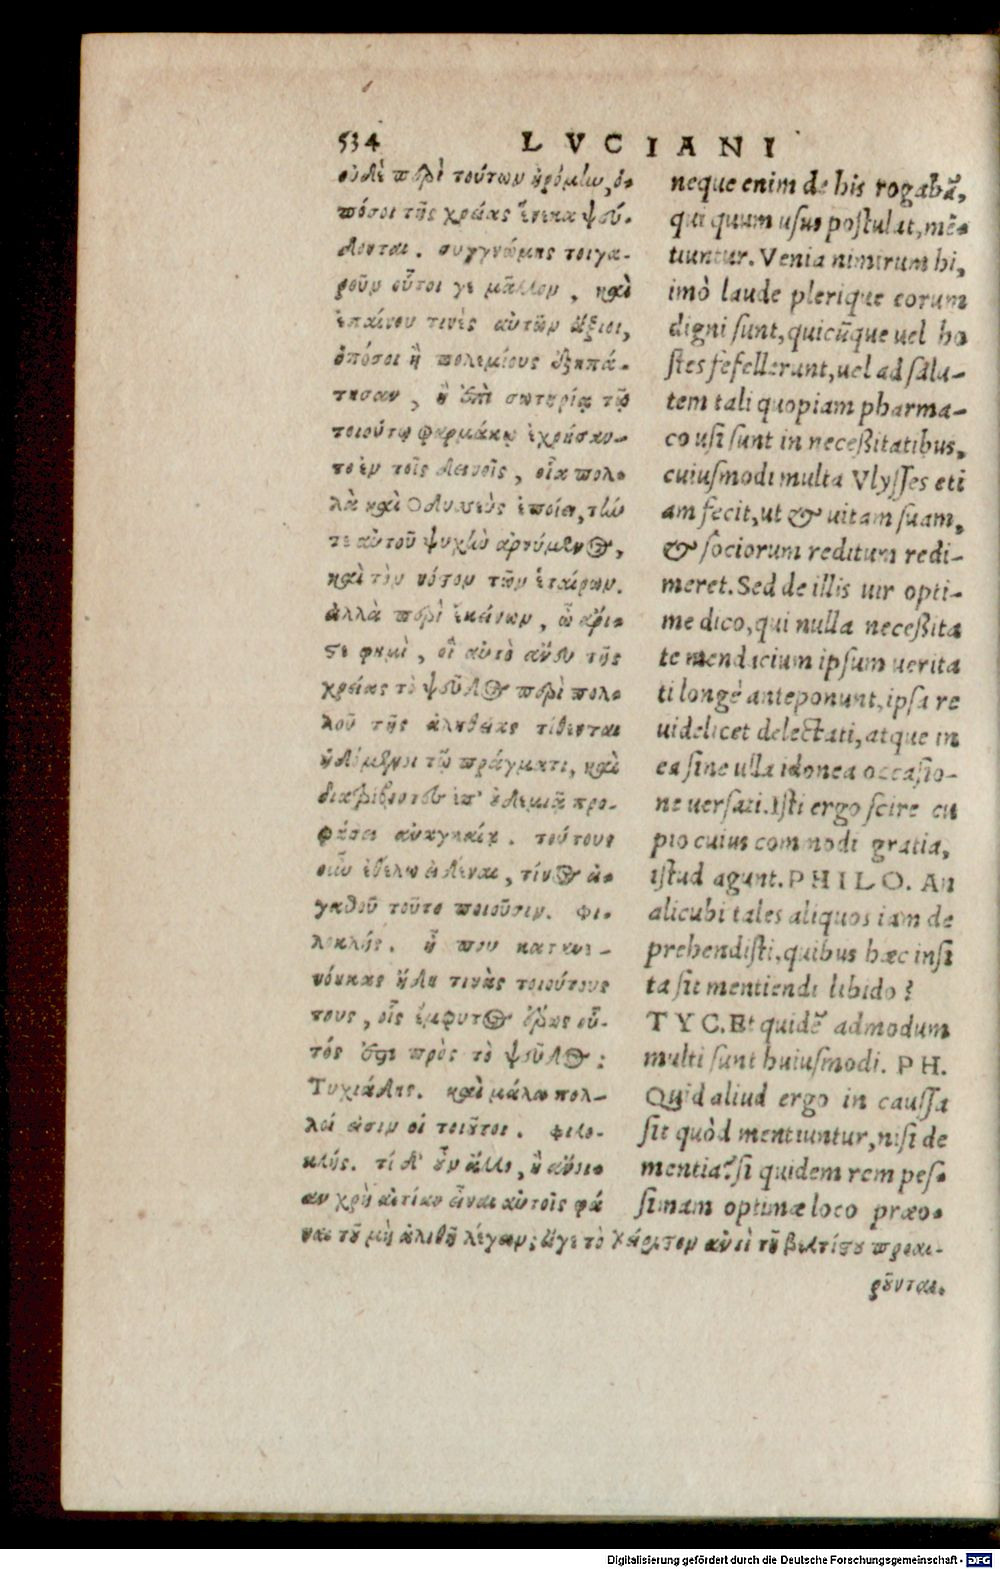 534 LVCIANI
οὐδὲ περὶ τούτων ἠρόμην, ὁ-
πόσοι τῆς χρείας ἕνεκα ψεύ-
δονται. συγγνώμης τοιγα-
ροῦν οὗτοι γε μᾶλλον, καὶ
ἐπαίνου τινὲς αὐτῶν ἄξιοι,
ὁπόσοι ἢ πολεμίους ἐξηπά-
τησαν, ἢ ἐπὶ σωτηρίᾳ τῷ
τοιούτῳ φαρμάκῳ ἐχρήσαν-
το ἐν τοῖς δεινοῖς, οἷα πολ-
λὰ καὶ Ὀδυσσεὺς ἐποίει, τήν
τε αὑτοῦ ψυχὴν ἀρνύμενος,
καὶ τὸν νόστον τῶν ἑταίρων.
ἀλλὰ περὶ ἐκείνων, ὦ ἄρι-
στε φημὶ, οἳ αὐτὸ ἄνευ τῆς
χρείας τὸ ψεῦδος περὶ πολ-
λοῦ τῆς ἀληθείας τίθενται
ἡδόμενοι τῷ πράγματι, καὶ
διατρίβοντες ἐπ' οὐδεμιᾷ προ-
φάσει ἀναγκαίᾳ. τούτους
οὖν ἐθέλω εἰδέναι, τίνος ἀ-
γαθοῦ τοῦτο ποιοῦσιν. Φι-
λοκλῆς. ἦ που κατανε-
νόηκας ἤδη τινὰς τοιούτους
τους, οἷς ἔμφυτος ἔρως οὗ-
τός ἐστι πρὸς τὸ ψεῦδος:
Τυχιάδης. καὶ μάλα πολ-
λοί εἰσιν οἱ τοιοῦτοι. Φιλο-
κλῆς. τί δ' οὖν ἄλλο, ἢ ἄνοι-
αν χρὴ αἰτίαν εἶναι αὐτοῖς φά
ναι τοῦ μὴ ἀληθῆ λέγειν; εἴγε τὸ χείριστον ἀντὶ τοῦ βελτίστου προαι-
ροῦνται.
neque enim de his rogabā,
qui quum usus postulat, mē-
tiuntur. Venia nimirum hi,
imò laude plerique eorum
digni sunt, quicūque uel ho
stes fefellerunt, uel ad salu-
tem tali quopiam pharma-
co usi sunt in neceßitatibus,
cuiusmodi multa Vlysses eti
am fecit, ut & uitam suam,
& sociorum reditum redi-
meret. Sed de illis uir opti-
me dico, qui nulla neceßita
te mendacium ipsum uerita
ti longè anteponunt, ipsa re
uidelicet delectati, atque in
ea sine ulla idonea occasio-
ne uersati. Isti ergo scire cu
pio cuius commodi gratia,
istud agunt. PHILO. An
alicubi tales aliquos iam de
prehendisti, quibus hæc insi
ta sit mentiendi libido?
TYC. Et quidē admodum
multi sunt huiusmodi. PH.
Quid aliud ergo in caussa
sit quòd mentiuntur, nisi de
mentia? si quidem rem pes-
simam optimæ loco præo-
Digitalisierung gefördert durch die Deutsche Forschungsgemeinschaft - DFG